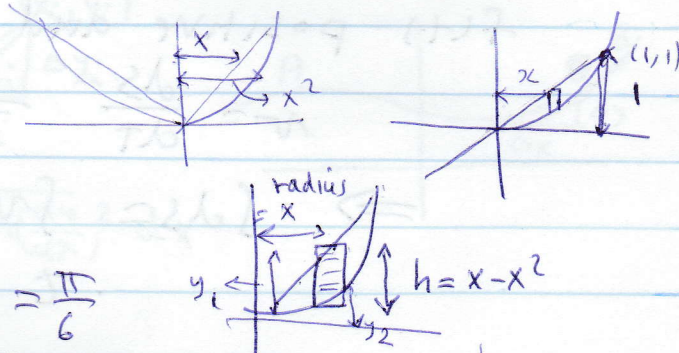 x
x²
x
(1,1)
1
radius
= x
y₁
h = x - x²
y₂
= π/6